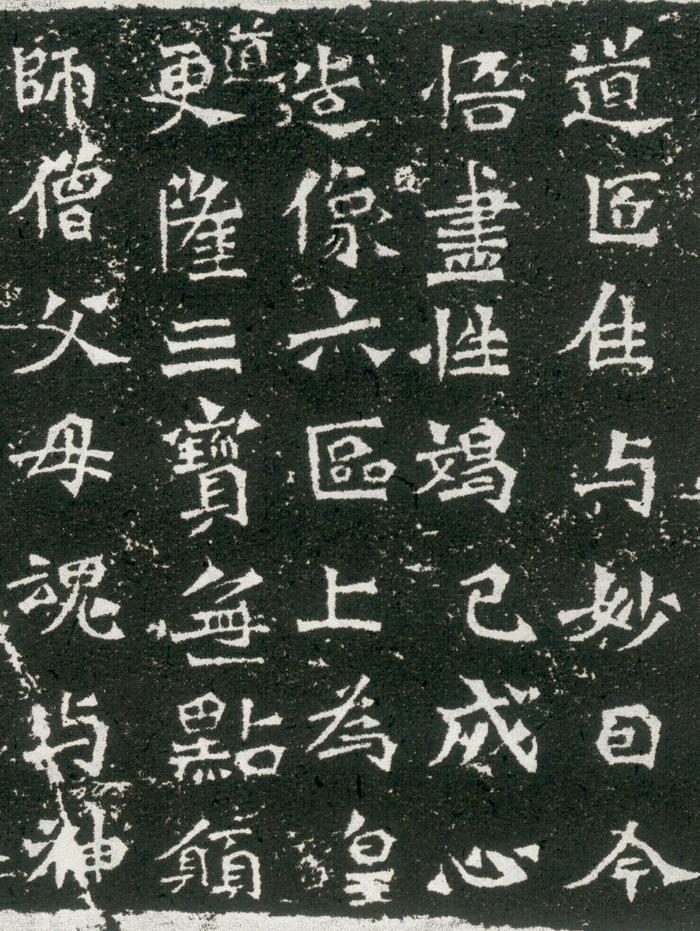 道匠住与妙因今
悟盡性竭己成心
造像六區上為皇
道
更隆三寶無點願
師僧父母魂与神